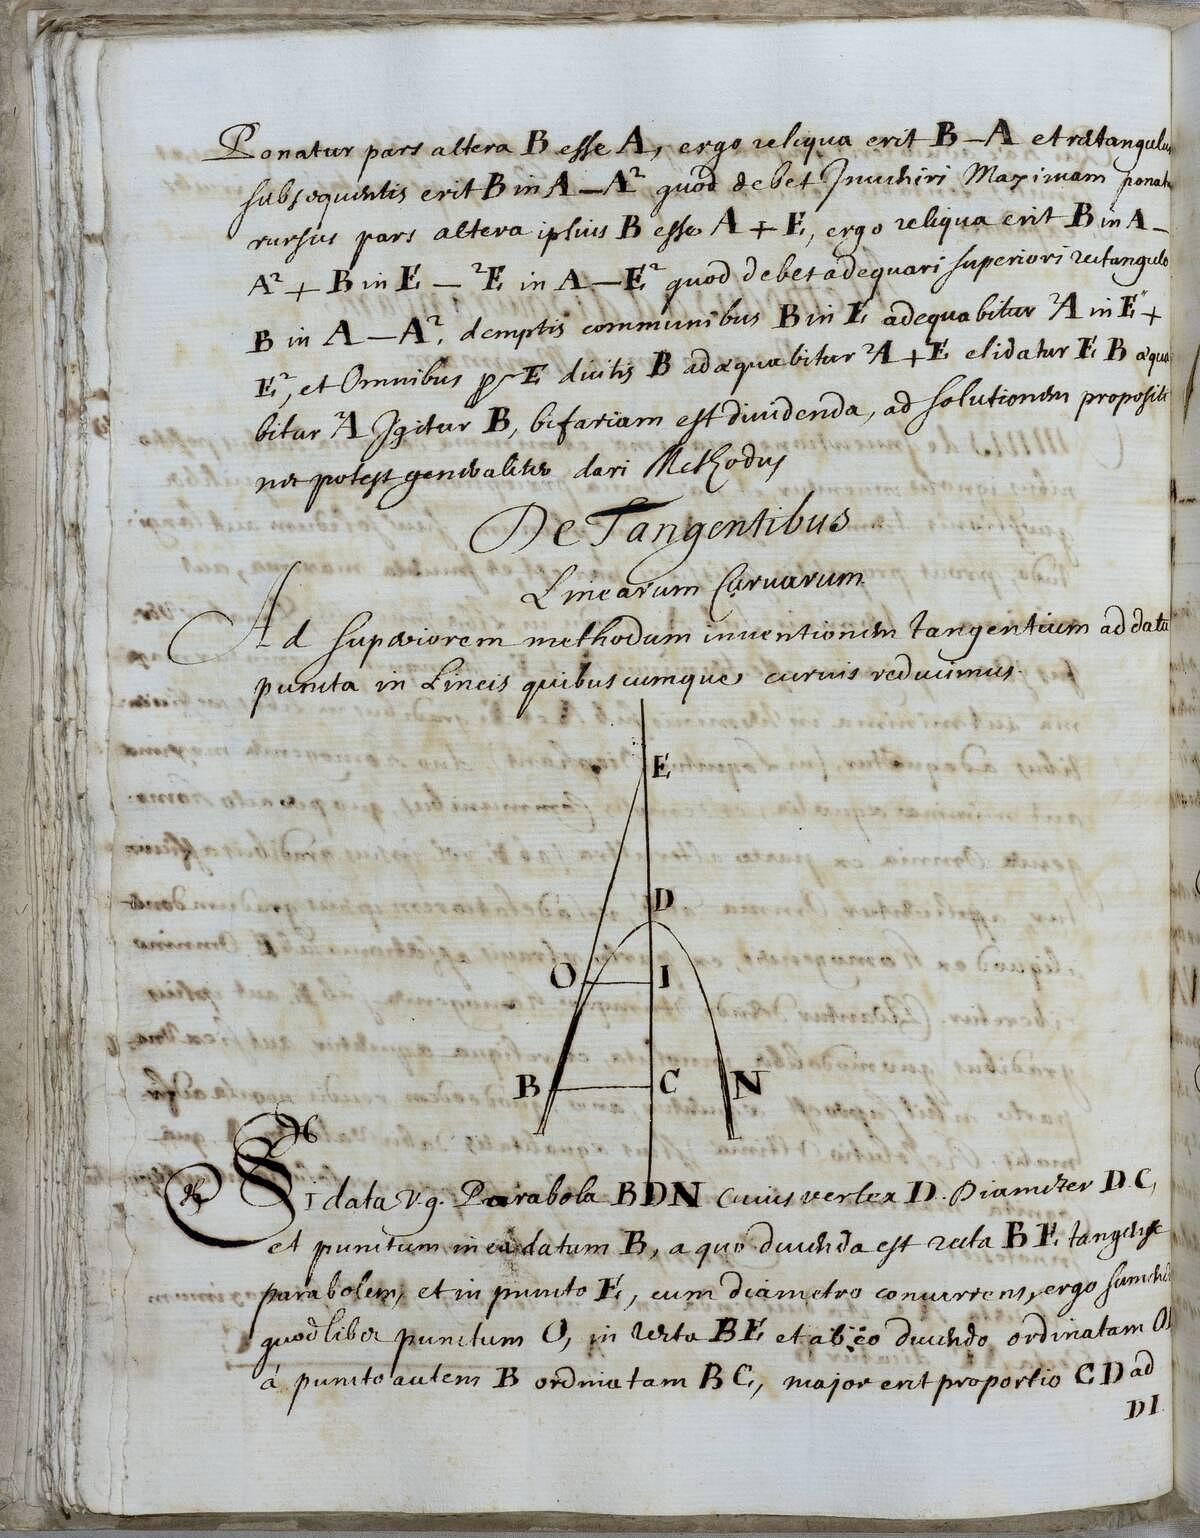 Ponatur pars altera B esse A, ergo reliqua erit B – A et rectangulum
subsequentis erit B in A – A² quod debet Inveniri Maximam ponatu
rursus pars altera ipsius B esse A + E, ergo reliqua erit B in A –
A² + B in E – ²E in A – E² quod debet adequari superiori rectangulo
B in A – A², demptis communibus B in E adequabitur ²A in E +
E², et Omnibus per E divitis B adæquabitur ²A + E elidatur E B æqua
bitur ²A Igitur B, bifariam est dividenda, ad solutionem propositi
nec potest generaliter dari Methodus
De Tangentibus
Linearum Curvarum
Ad superiorem methodum inventionem tangentium ad data
puncta in Lineis quibuscumque curvis reducimus.
E
D
O I
B C N
Si data v.g. Parabola BDN Cuius vertex D. Diameter D.C,
et punctum in ea datum B, a quo ducenda est recta BE tangens
parabolem, et in puncto E, cum diametro concurrens, ergo sumendo
quodlibet punctum O, in recta BE et ab eo ducendo ordinatam OI
á puncto autem B ordinatam BC, major erit proportio CD ad
DI.